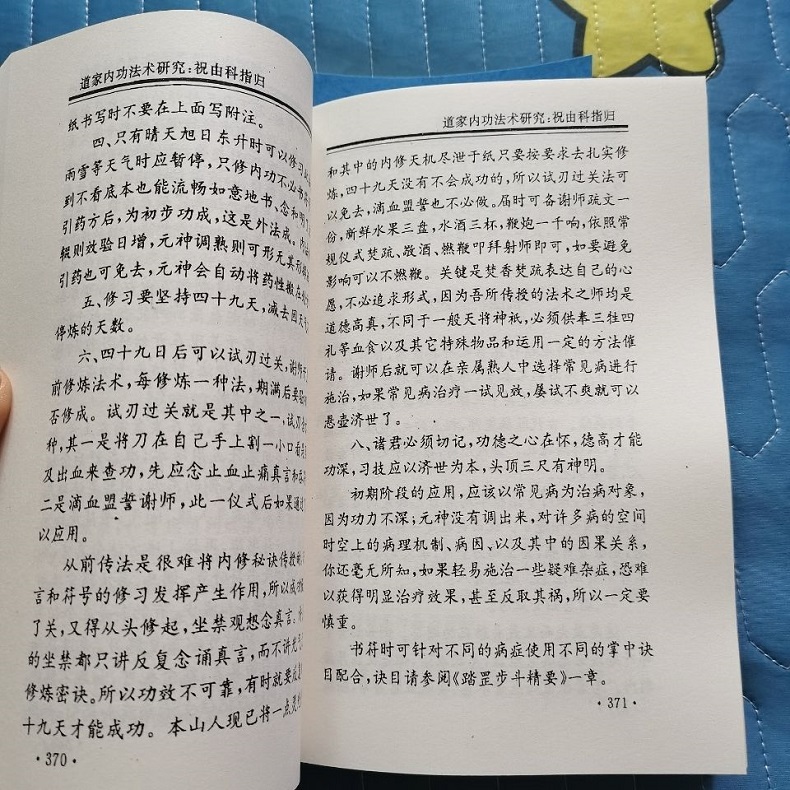 道家内功法术研究：祝由科指归
纸书写时不要在上面写附注。
四、只有晴天旭日东升时可以修习
雨雪等天气时应暂停，只修内功不必书
到不看底本也能流畅如意地书、念和明
引药方后，为初步功成，这是外法成。
辍则效验日增，元神调熟则可形无其形
引药也可免去，元神会自动将药性搬在
五、修习要坚持四十九天，减去因天
停炼的天数。
六、四十九日后可以试刃过关，谢师
前修炼法术，每修炼一种法，期满后要
否修成。试刃过关就是其中之一，试刃
种，其一是将刀在自己手上割一小口看
及出血来查功，先应念止血止痛真言和
二是滴血盟誓谢师，此一仪式后如果通过
以应用。
从前传法是很难将内修秘诀传授
言和符号的修习发挥产生作用，所以
了关，又得从头修起，坐禁观想念真言。
的坐禁都只讲反复念诵真言，而不讲
修炼密诀。所以功效不可靠，有时就要
十九天才能成功。本山人现已将一点
·370·
道家内功法术研究：祝由科指归
和其中的内修天机尽泄于纸只要按要求去扎实修
炼，四十九天没有不会成功的，所以试刃过关法可
以免去，滴血盟誓也不必做。届时可备谢师疏文一
份，新鲜水果三盘，水酒三杯，鞭炮一千响，依照常
规仪式焚疏、敬酒、燃鞭叩拜射师即可，如要避免
影响可以不燃鞭。关键是焚香焚疏表达自己的心
愿，不必追求形式，因为吾所传授的法术之师均是
道德高真，不同于一般天将神祇，必须供奉三牲四
礼等血食以及其它特殊物品和运用一定的方法催
请。谢师后就可以在亲属熟人中选择常见病进行
施治，如果常见病治疗一试见效，屡试不爽就可以
悬壶济世了。
八、诸君必须切记，功德之心在怀，德高才能
功深，习技应以济世为本，头顶三尺有神明。
初期阶段的应用，应该以常见病为治病对象，
因为功力不深；元神没有调出来，对许多病的空间
时空上的病理机制、病因、以及其中的因果关系，
你还毫无所知，如果轻易施治一些疑难杂症，恐难
以获得明显治疗效果，甚至反取其祸，所以一定要
慎重。
书符时可针对不同的病症使用不同的掌中诀
目配合，诀目请参阅《踏罡步斗精要》一章。
·371·